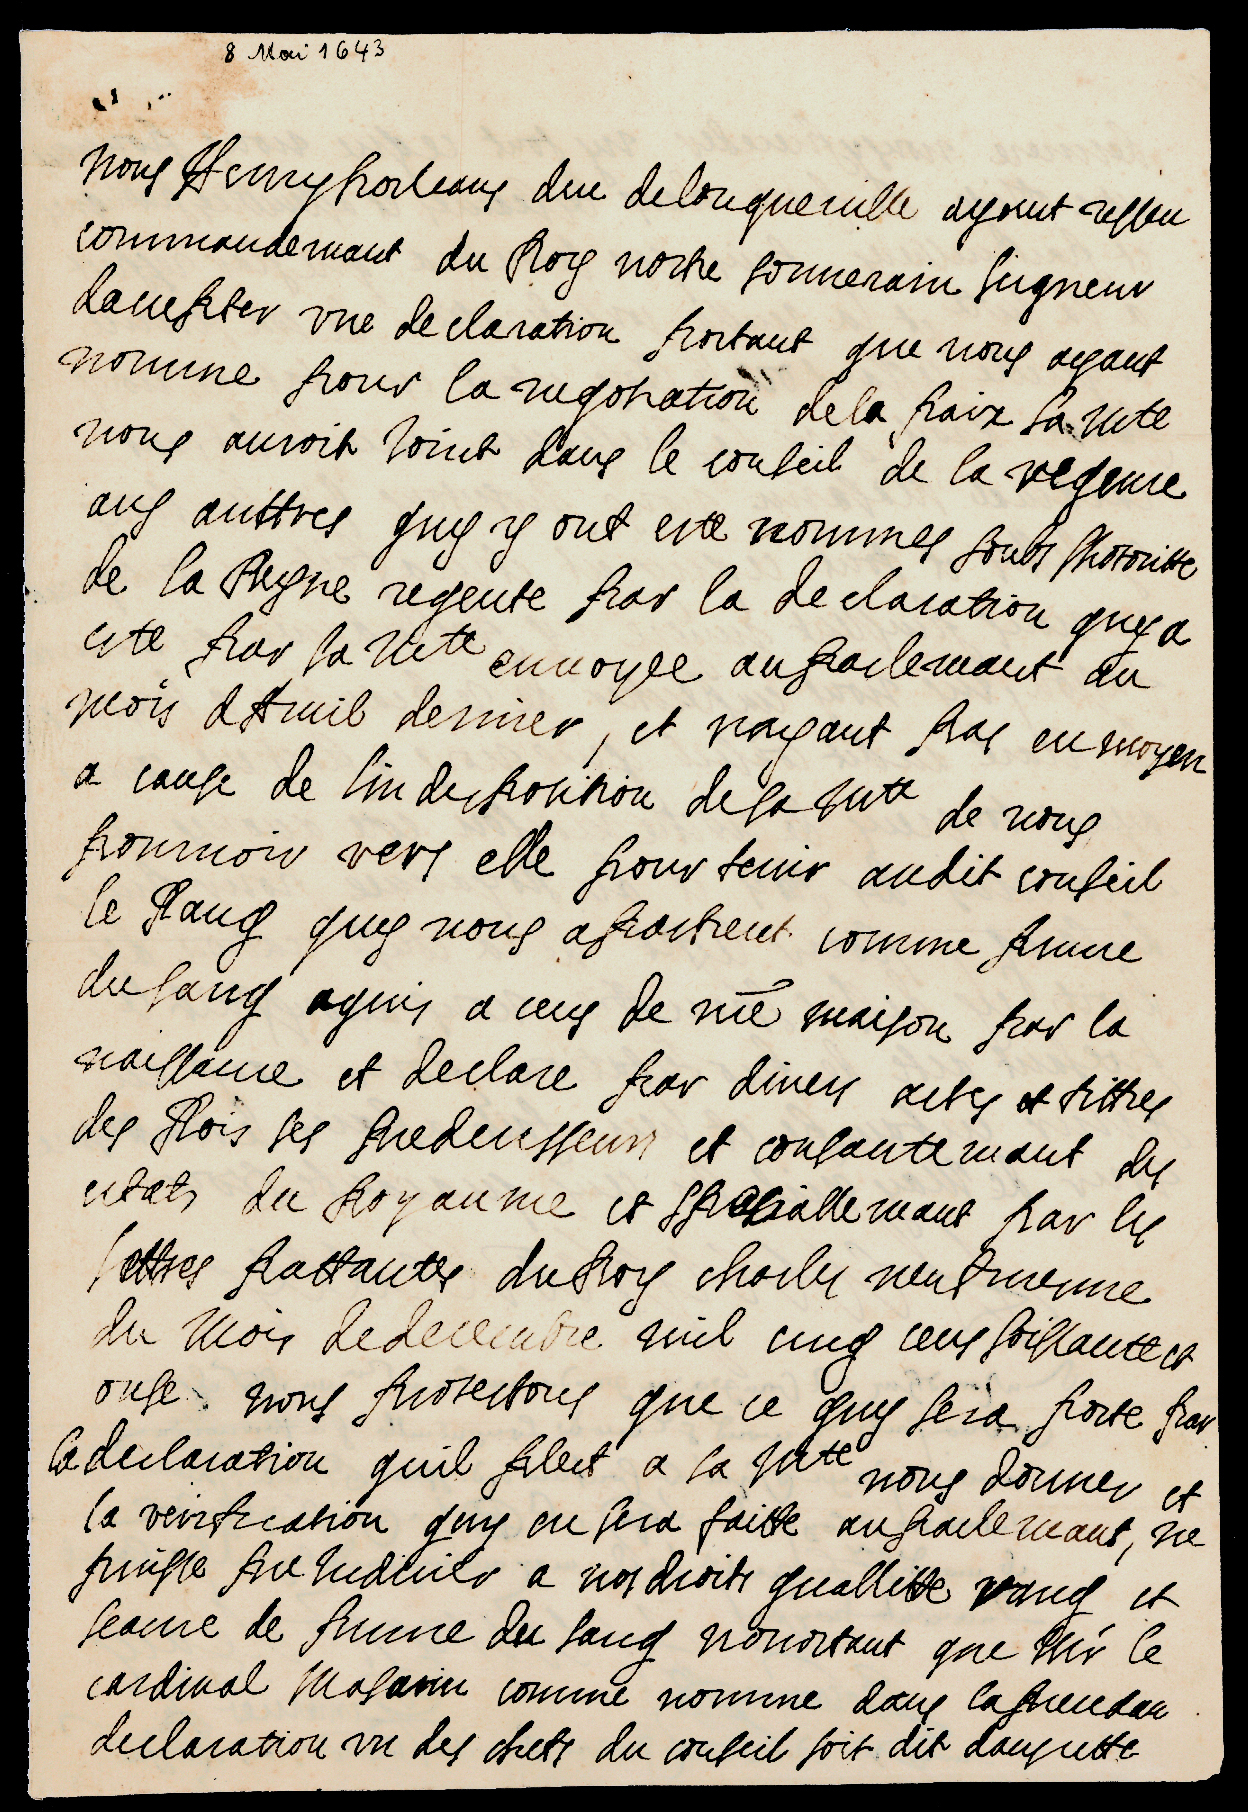 8 Mai 1643
nous Henry dorleans duc de longueville ayant resseu
commandemant du Roy nostre souuerain seigneur
dacepter vne declaration portant que nous ayant
nomme pour la negotiation de la paix sa mte
nous auroit joint dans le conseil de la regence
aus auttres quy y ont este nommes soubs lhotoritte
de la Reyne regente par la declaration quy a
este par sa Mtte enuoyee au parlemant au
mois dAuril dernier, et nayant pas eu moyen
a cause de lindisposition de sa Mtte de nous
pouruoir vers elle pour tenir audit conseil
le Rang quy nous apartient comme prince
du sang aquis a ceus de nre maison par la
naissance et declare par diuers actes et tittres
des Rois ses predecesseurs et consantemant des
estats du Royaume et spesiallemant par les
lettres pattantes du Roy charles neufuiesme
du Mois de decembre mil cinq cens soissante et
onse. nous protestons que ce quy sera porte par
la declaration quil plest a sa Mtte nous donner et
la veriffication quy en sera faitte au parlemant, ne
puisse preiudicier a nos droits quallitte rang et
seance de prince du sang nonostant que Mr le
cardinal Masarin comme nomme dans la
declaration vn des chefs du conseil soit dit dans cette